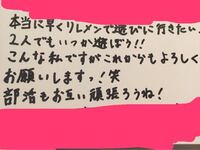 本当に早くリレメンで遊びに行きたい
2人でもいつか遊ぼう!!
こんな私ですがこれかからもよろしく
お願いしますっ!笑
部活もお互い頑張ろうね!